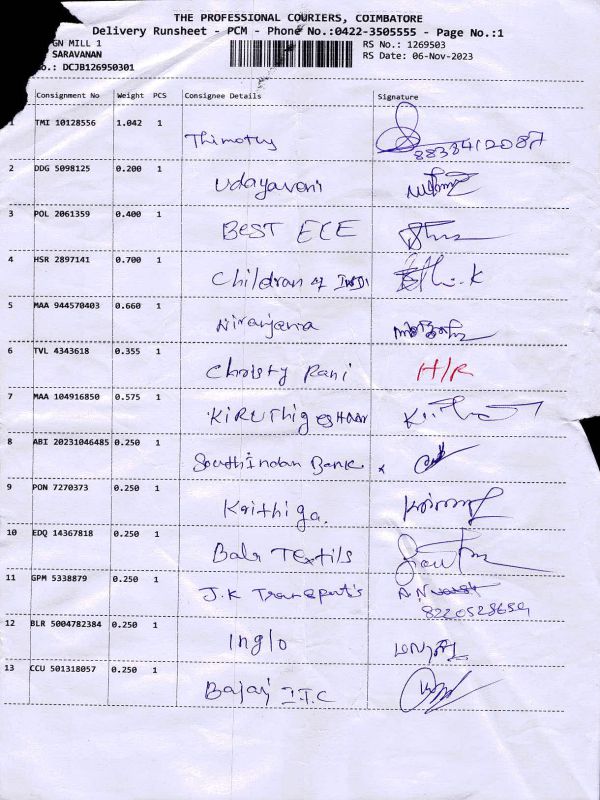 THE PROFESSIONAL COURIERS, COIMBATORE
Delivery Runsheet - PCM - Phone No.:0422-3505555 - Page No.:1
GN MILL 1 RS No.: 1269503
SARAVANAN RS Date: 06-Nov-2023
No.: DCJB126950301
Consignment No Weight PCS Consignee Details Signature
1 TMI 10128556 1.042 1 Thimothy
8838412087
2 DDG 5098125 0.200 1 Udayaveni
3 POL 2061359 0.400 1 BEST ECE
4 HSR 2897141 0.700 1 Children of INDI
5 MAA 944570403 0.660 1 Niranjana
6 TVL 4343618 0.355 1 Christy Rani H/R
7 MAA 104916850 0.575 1 KIRUThigesHAAR
8 ABI 20231046485 0.250 1 South Indian Bank
9 PON 7270373 0.250 1 Krithiga.
10 EDQ 14367818 0.250 1 Bala TExtils
11 GPM 5338879 0.250 1 J.K Transports
8220528659
12 BLR 5004782384 0.250 1 Inglo
13 CCU 501318057 0.250 1 Bajaj I.T.C